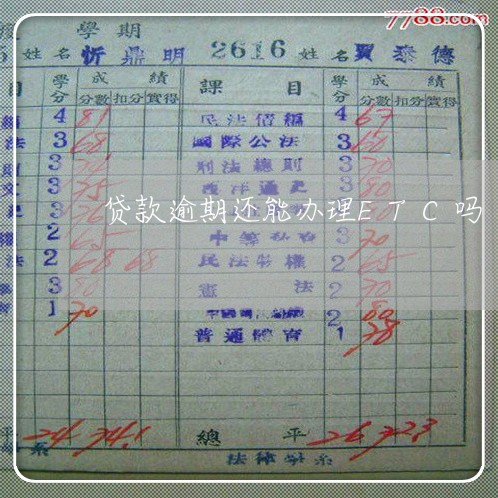 7788.com
學期
5 姓名 忻鼎明 2616 姓名 賈泰德
目 學分 成績 課目 學分 成績
分數 扣分 實得 分數 扣分 實得
4 81 民法債編 4 67
法 3 68 國際公法 3 60
3 刑法總則 3 70
文 3 75 西洋通史 3 80
貸款逾期还能办理ETC吗
2 65 3 70
法 2 68 68 民法物權 2 65
3 80 憲法 2 70
1 70 2 80
普通體育 1 78
平 24 74.1 總平 26 72.3
系 法律學系